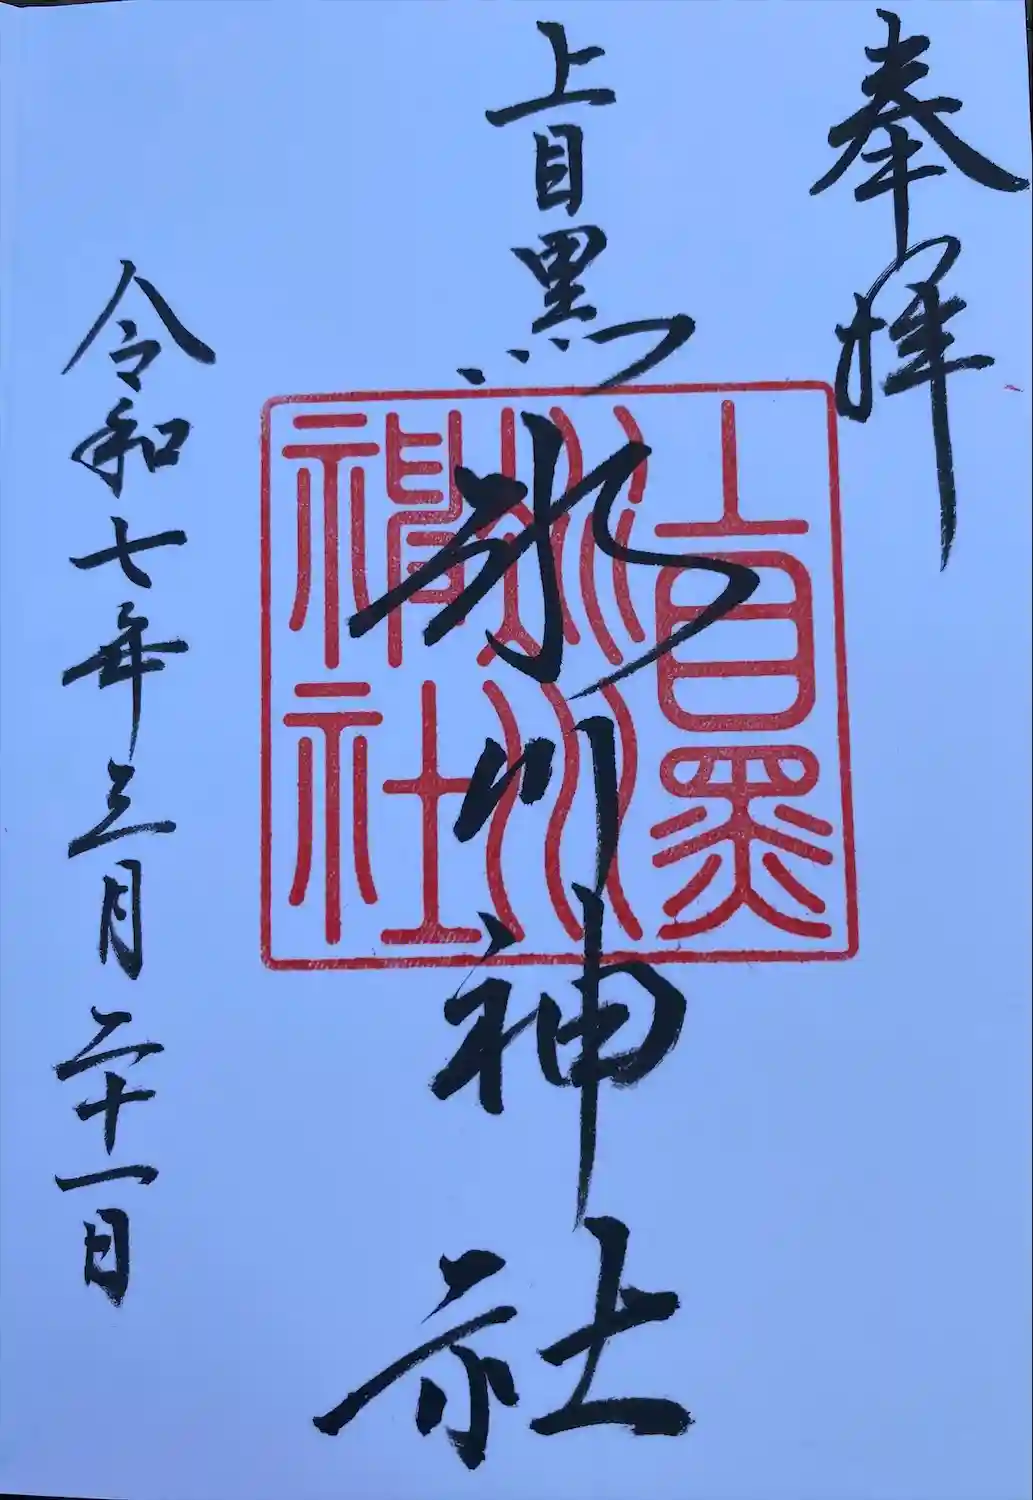 奉拝
上目黒
氷川神社
令和七年三月二十一日
上目黒
氷川
神社